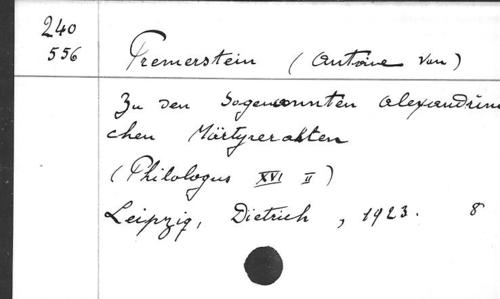 240
556
Premerstein (Antoine von)
Zu den sogenannten alexandrin
chen Märtyrerakten
(Philologus XVI II)
Leipzig, Dietrich, 1923. 8